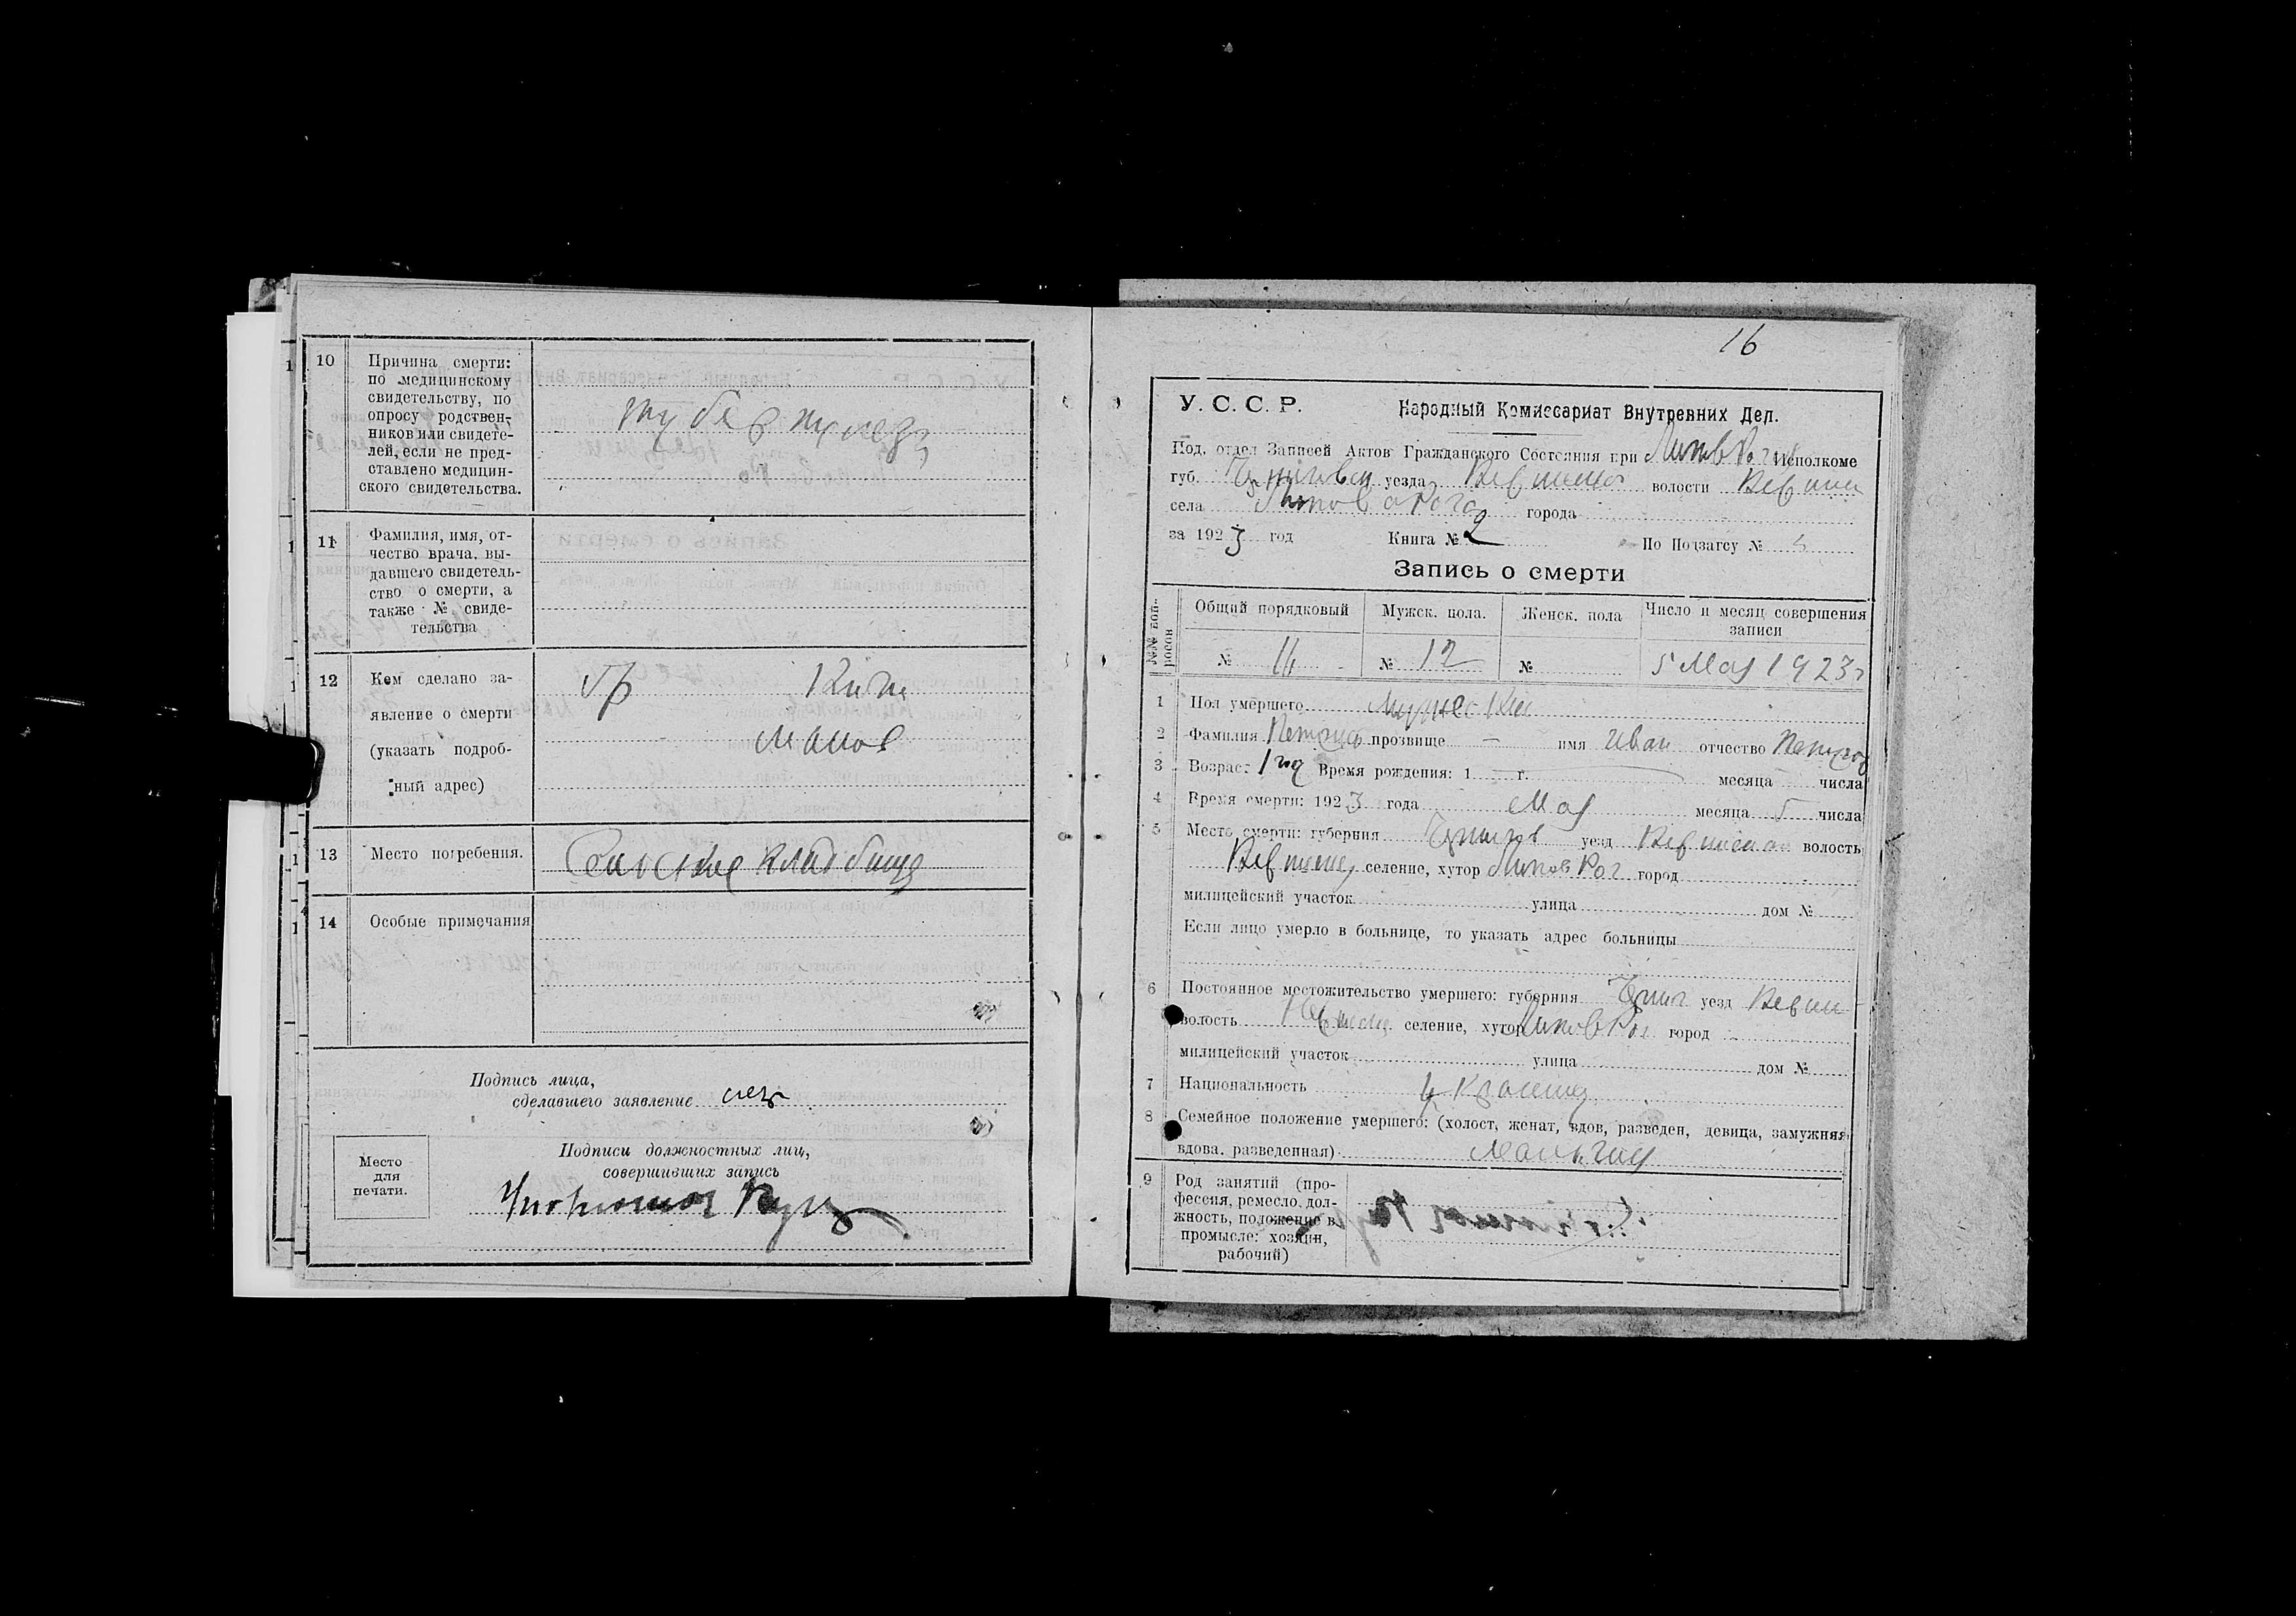 10 Причина смерти:
по медицинскому
свидетельству, по
опросу родствен-
ников или свидете-
лей, если не пред-
ставлено медицин-
ского свидетельства.
туберкулез
11 Фамилия, имя, от-
чество врача, вы-
давшего свидетель-
ство о смерти, а
также № свиде-
тельства
12 Кем сделано за-
явление о смерти
(указать подроб-
ный адрес)
гр
13 Место погребения.
Сельское кладбище
14 Особые примечания
Подпись лица,
сделавшего заявление
Подписи должностных лиц,
совершивших запись
Место
для
печати.
16
У. С. С. Р. Народный Комиссариат Внутренних Дел.
Под. отдел Записей Актов Гражданского Состояния при Липов Рог Исполкоме
губ. уезда волости
села Липова Рога города
за 1923 год Книга № 2 По Подзагсу №
Запись о смерти
№№ вопросов
Общий порядковый Мужск. пола. Женск. пола Число и месяц совершения
записи
№ 16 № 12 № 5 Мая 1923 г
1 Пол умершего Мужеский
2 Фамилия прозвище — имя Иван отчество Петров
3 Возраст 1 год Время рождения: 1 г. месяца числа
4 Время смерти: 1923 года Мая месяца 5 числа
5 Место смерти: губерния Чернигов уезд волость
селение, хутор Липов Рог город
милицейский участок улица дом №
Если лицо умерло в больнице, то указать адрес больницы
6 Постоянное местожительство умершего: губерния Черниг уезд
волость селение, хутор Липов Рог город
милицейский участок улица дом №
7 Национальность украинец
8 Семейное положение умершего: (холост, женат, вдов, разведен, девица, замужняя
вдова, разведенная)
9 Род занятий (про-
фессия, ремесло, дол-
жность, положение в
промысле: хозяин,
рабочий)